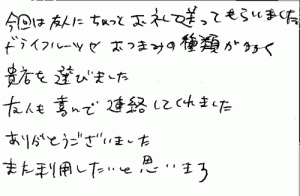 今回は友人にちょっとお礼して送ってもらいました
ドライフルーツやおつまみの種類が多く
貴店を選びました
友人も喜んで連絡してくれました
ありがとうございました
また利用したいと思います